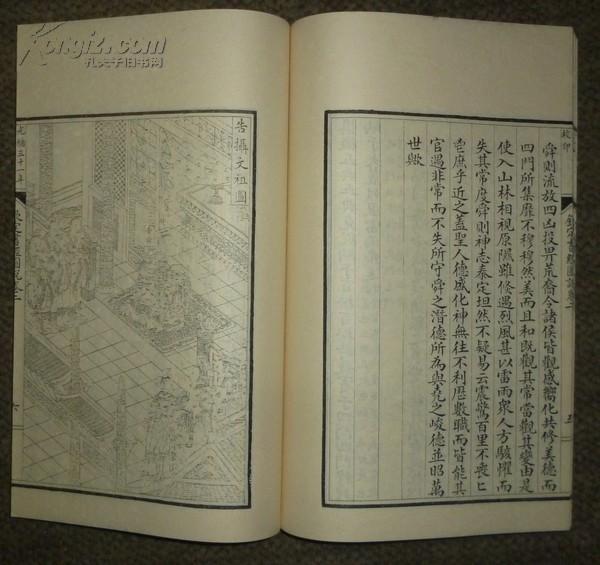 舜則流放四凶投畀荒裔令諸侯皆觀感嚮化共修美德而
四門所集靡不穆穆然美而且和既觀其常當觀其變由是
使入山林相視原隰雖倏遇烈風甚以雷雨衆人方駭懼而
失其常度舜則神志泰定坦然不疑易云震驚百里不喪匕
鬯庶乎近之蓋聖人德盛化神無往不利歷數職而皆能其
官遇非常而不失所守舜之潛德所為與堯之峻德並昭萬
世歟
五
告攝文祖圖
光緒三十一年
欽定書經圖說卷二
六
Kongfz.com
孔夫子旧书网